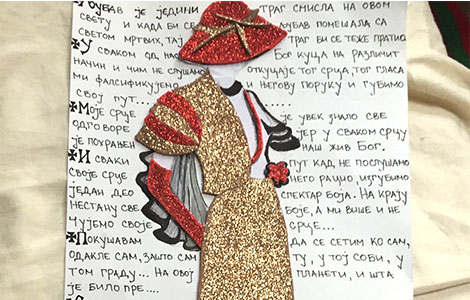 Љубав је једини траг смисла на овом
свету и када би се љубав помешала са
светом мртвих, тај траг би се теже пратио
У сваком од нас Бог куца на различит
начин и чим не слушамо откуцаје тог срца, тог гласа
ми фалсификујемо и његову поруку и губимо
свој пут...
Моје срце је увек знало све
одговоре јер у сваком срцу
је похрањен наш жив Бог.
И сваки пут кад не послушамо
своје срце него рацио, изгубимо
један део спектар боја. На крају
нестану све боје, а ми више и не
чујемо своје срце...
Покушавам да се сетим ко сам,
одакле сам, зашто сам у тој соби, у
том граду... на овој планети, и шта
је било пре....